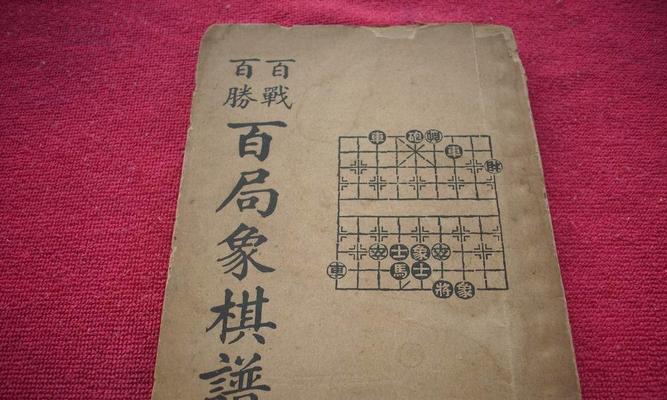 百戰
百勝
百局象棋譜
車 砲
車
士 象
車 馬 士
將 象